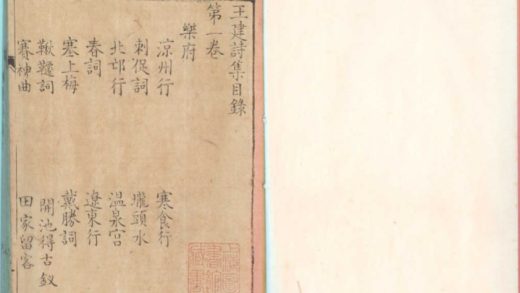 王建詩集目錄
第一卷
樂府
涼州行　寒食行
刺促詞　壠頭水
北邙行　温泉宮
春詞　遼東行
塞上梅　戴勝詞
鞦韆詞　開池得古釵
賽神曲　田家留客